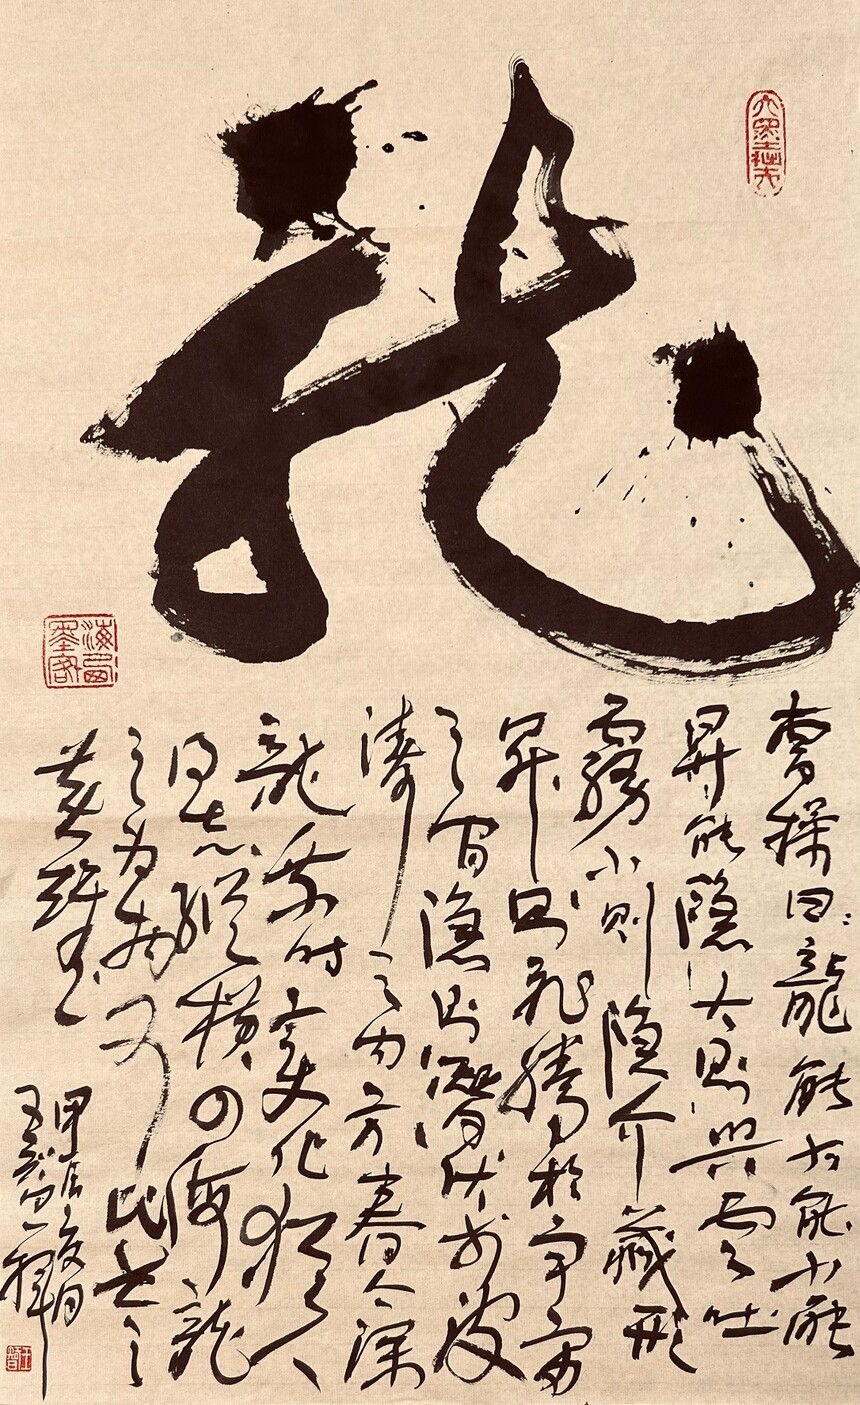 龍
曹操曰：龍能大能小能
昇能隱大則興雲吐
霧小則隱介藏形
昇則飛騰於宇宙
之間隱則潛伏於波
濤之内方春今深
龍乘時變化猶人
得志縱橫四海龍
之為物可比世之
英雄也
甲辰夏月